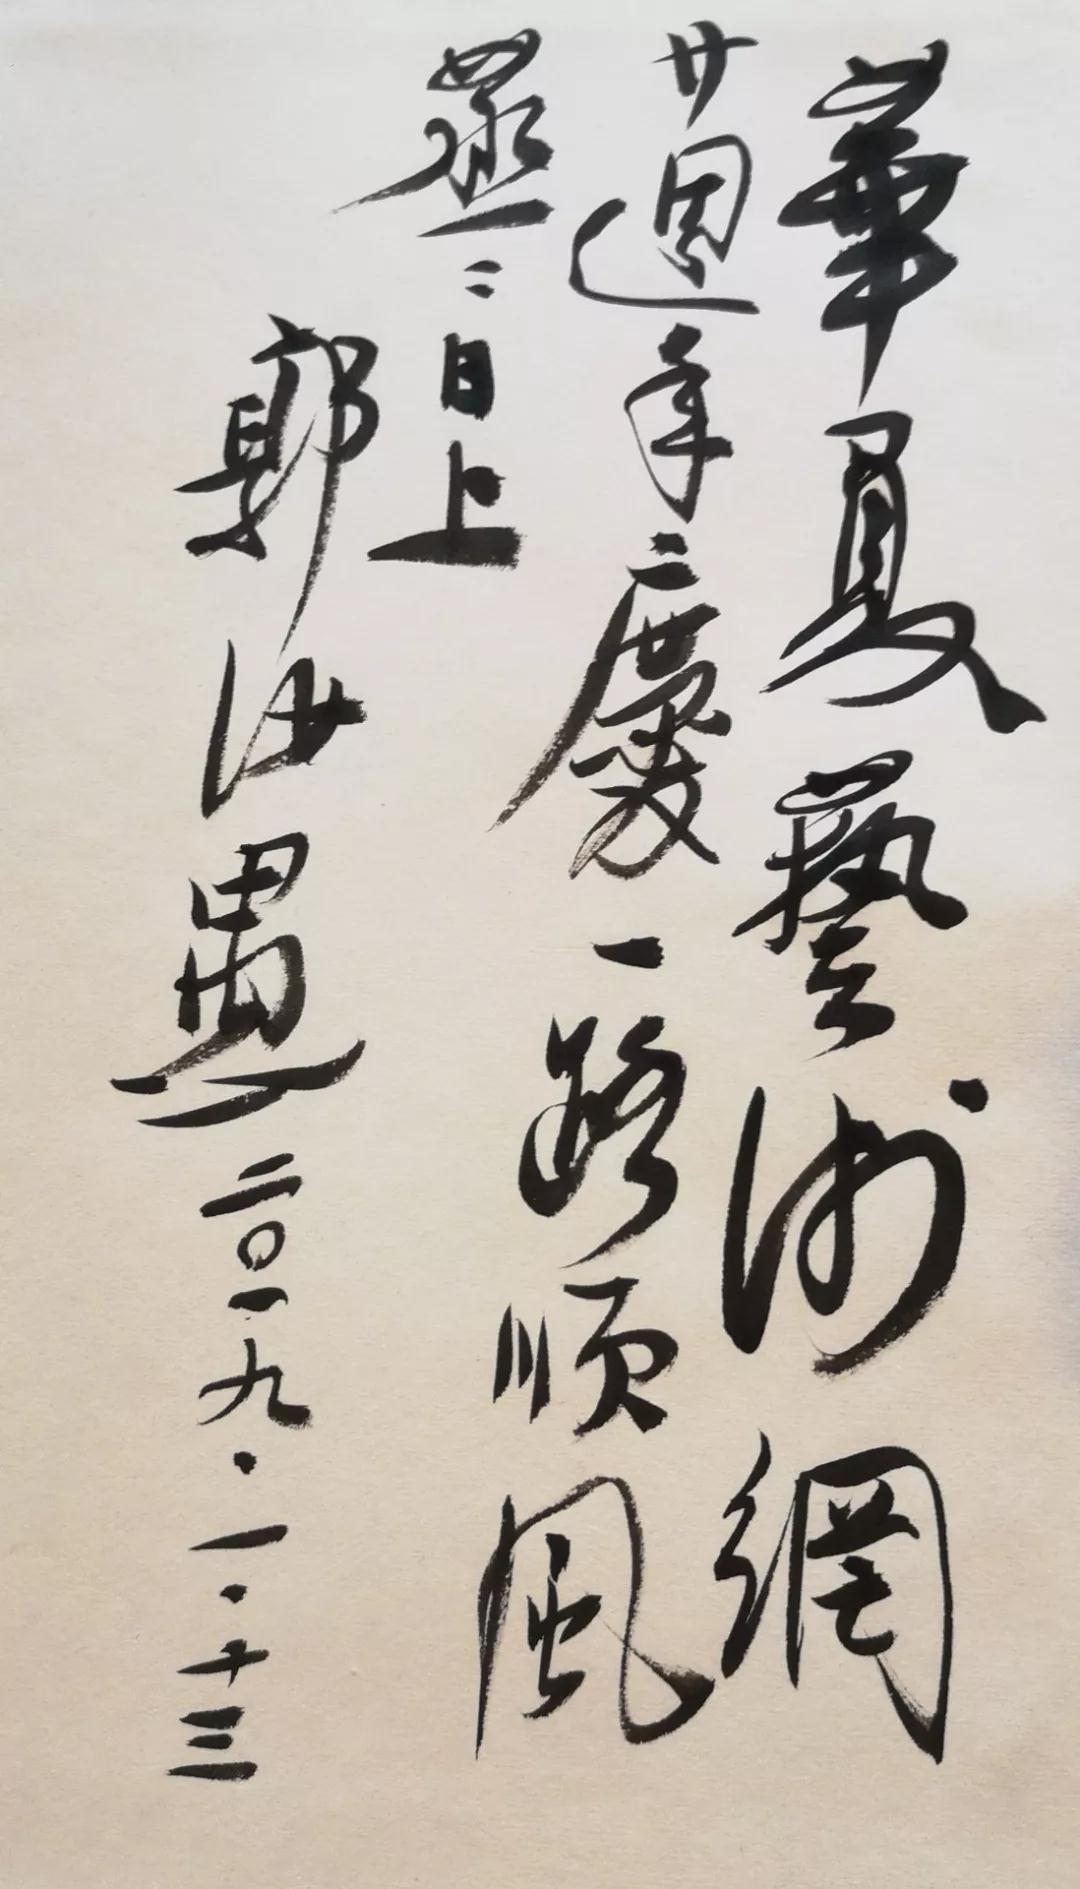 華夏藝術網
廿週年慶一路順風
蒸〻日上
郭汝愚 二〇一九.一.十三